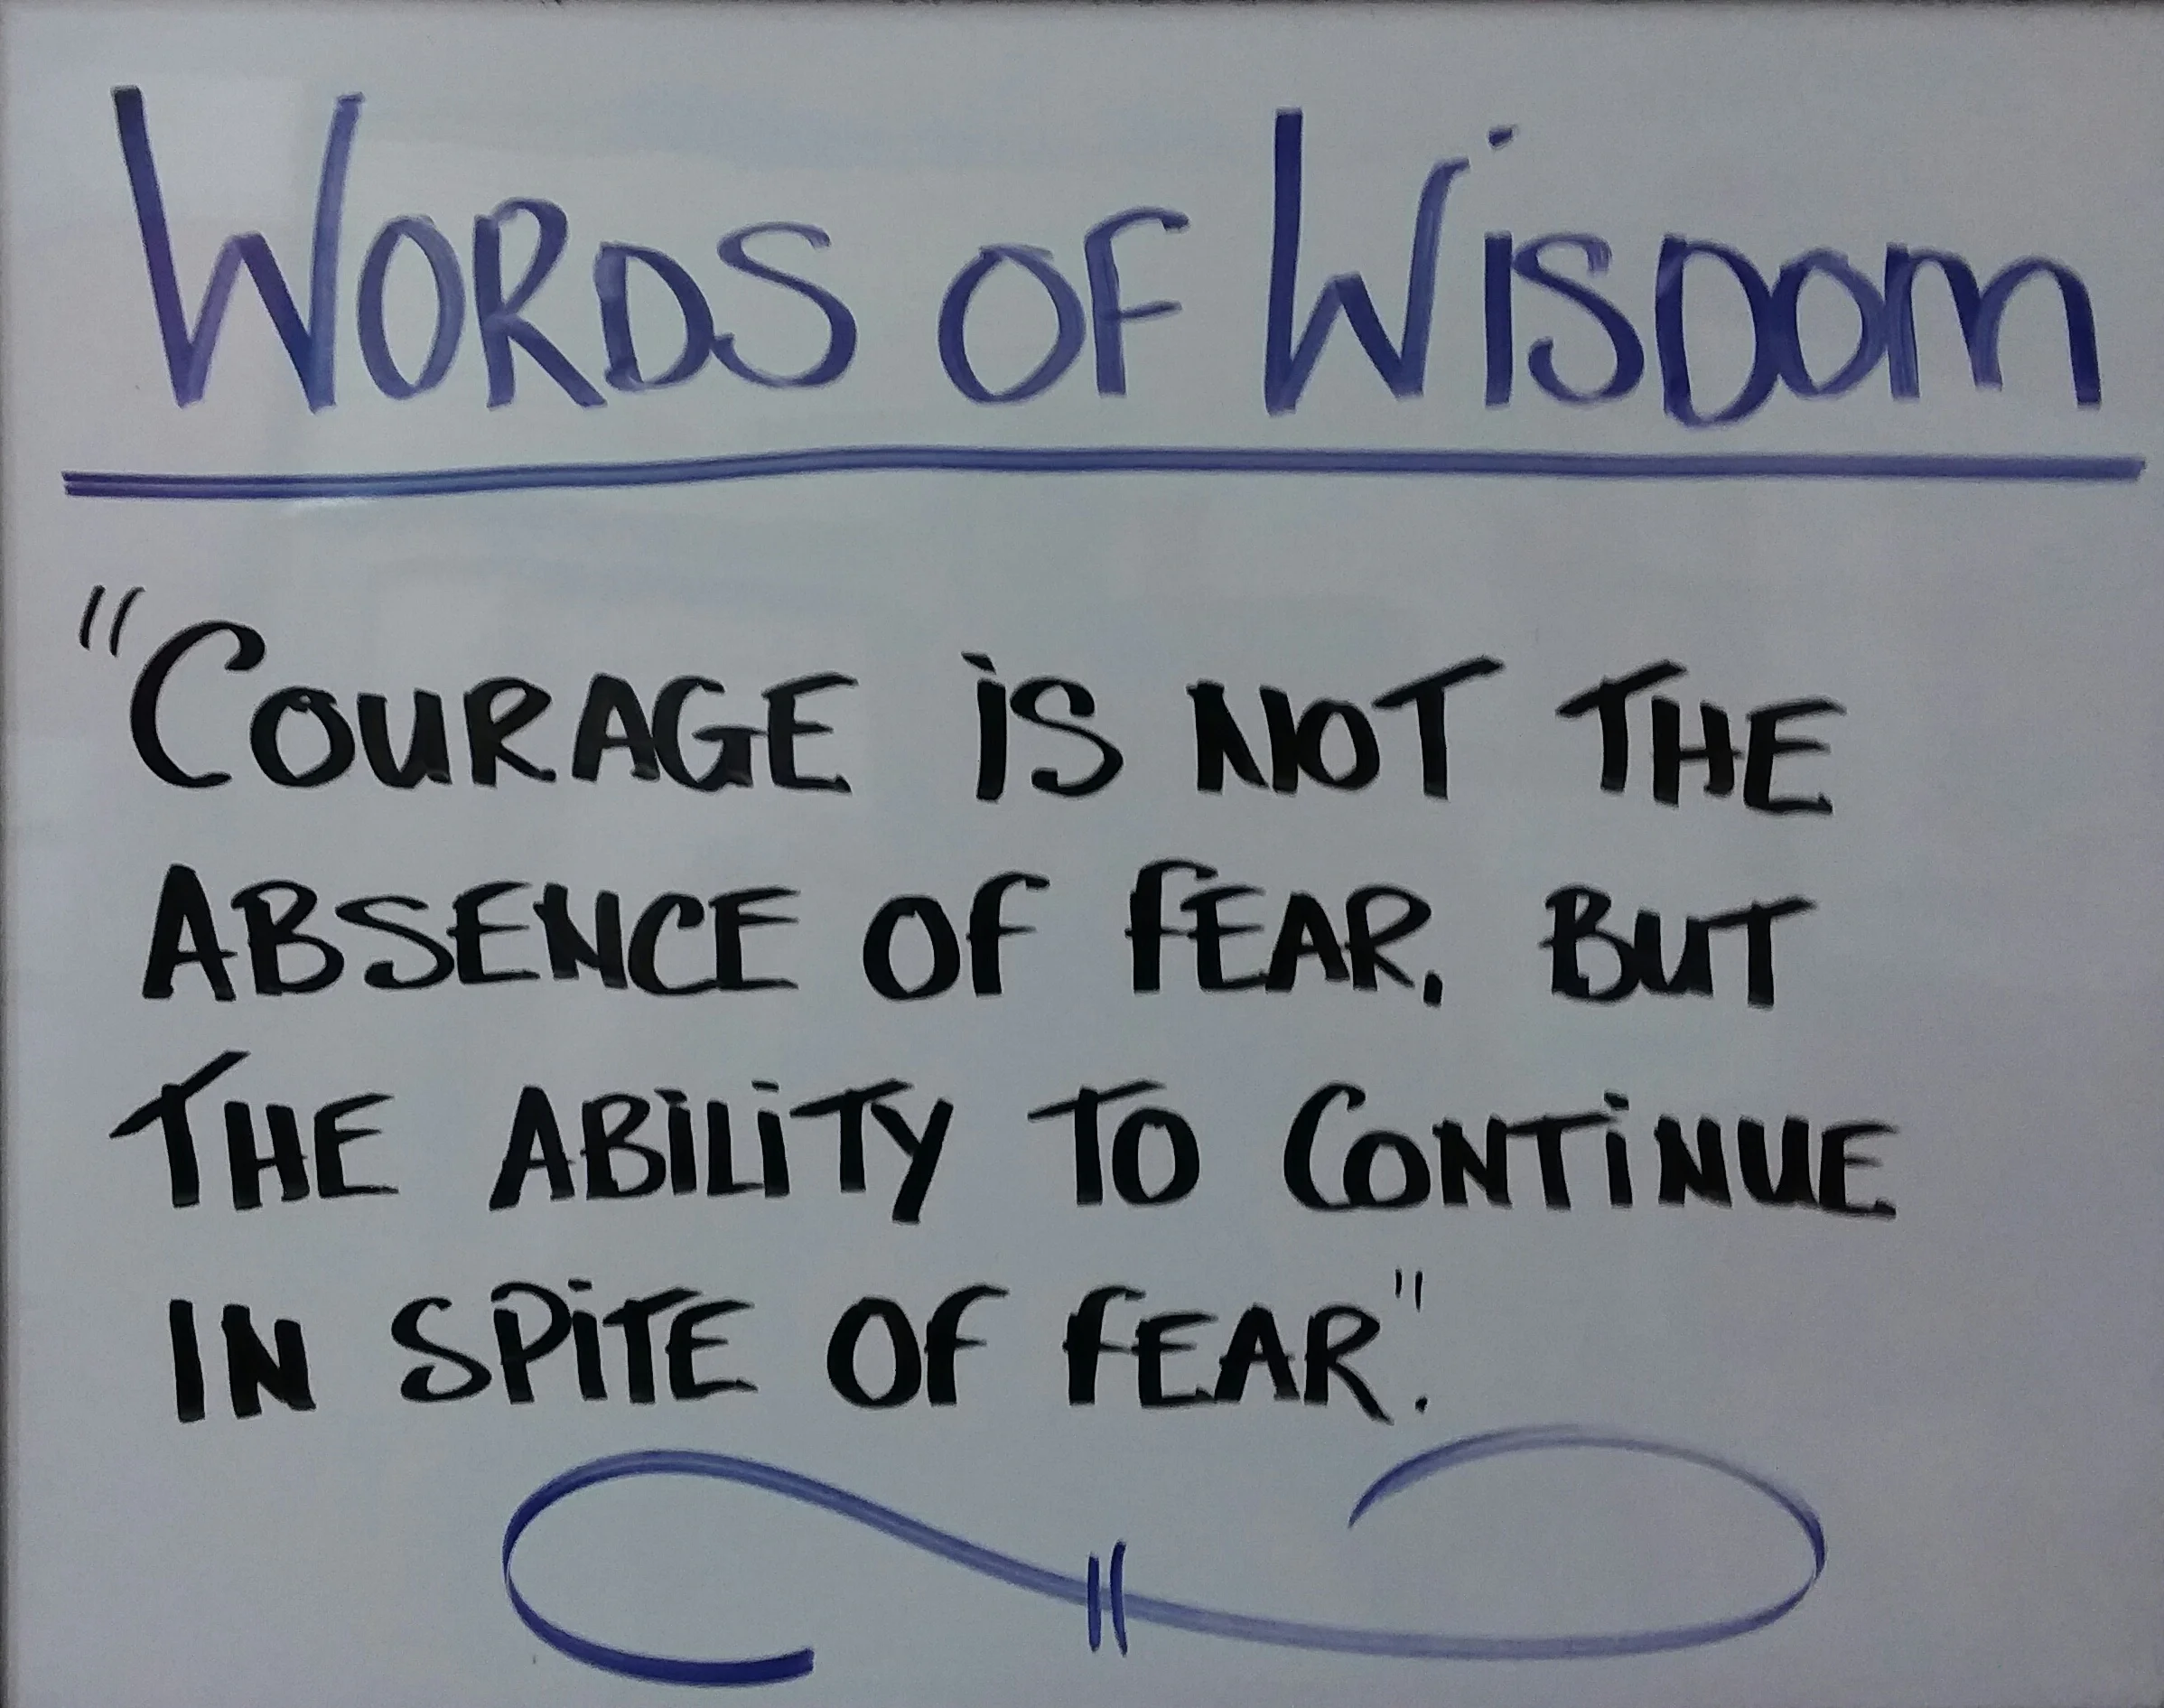 WORDS OF WISDOM
"COURAGE iS NOT THE
ABSENCE OF FEAR, BUT
THE ABiLiTY TO CONTiNUE
IN SPiTE OF FEAR."